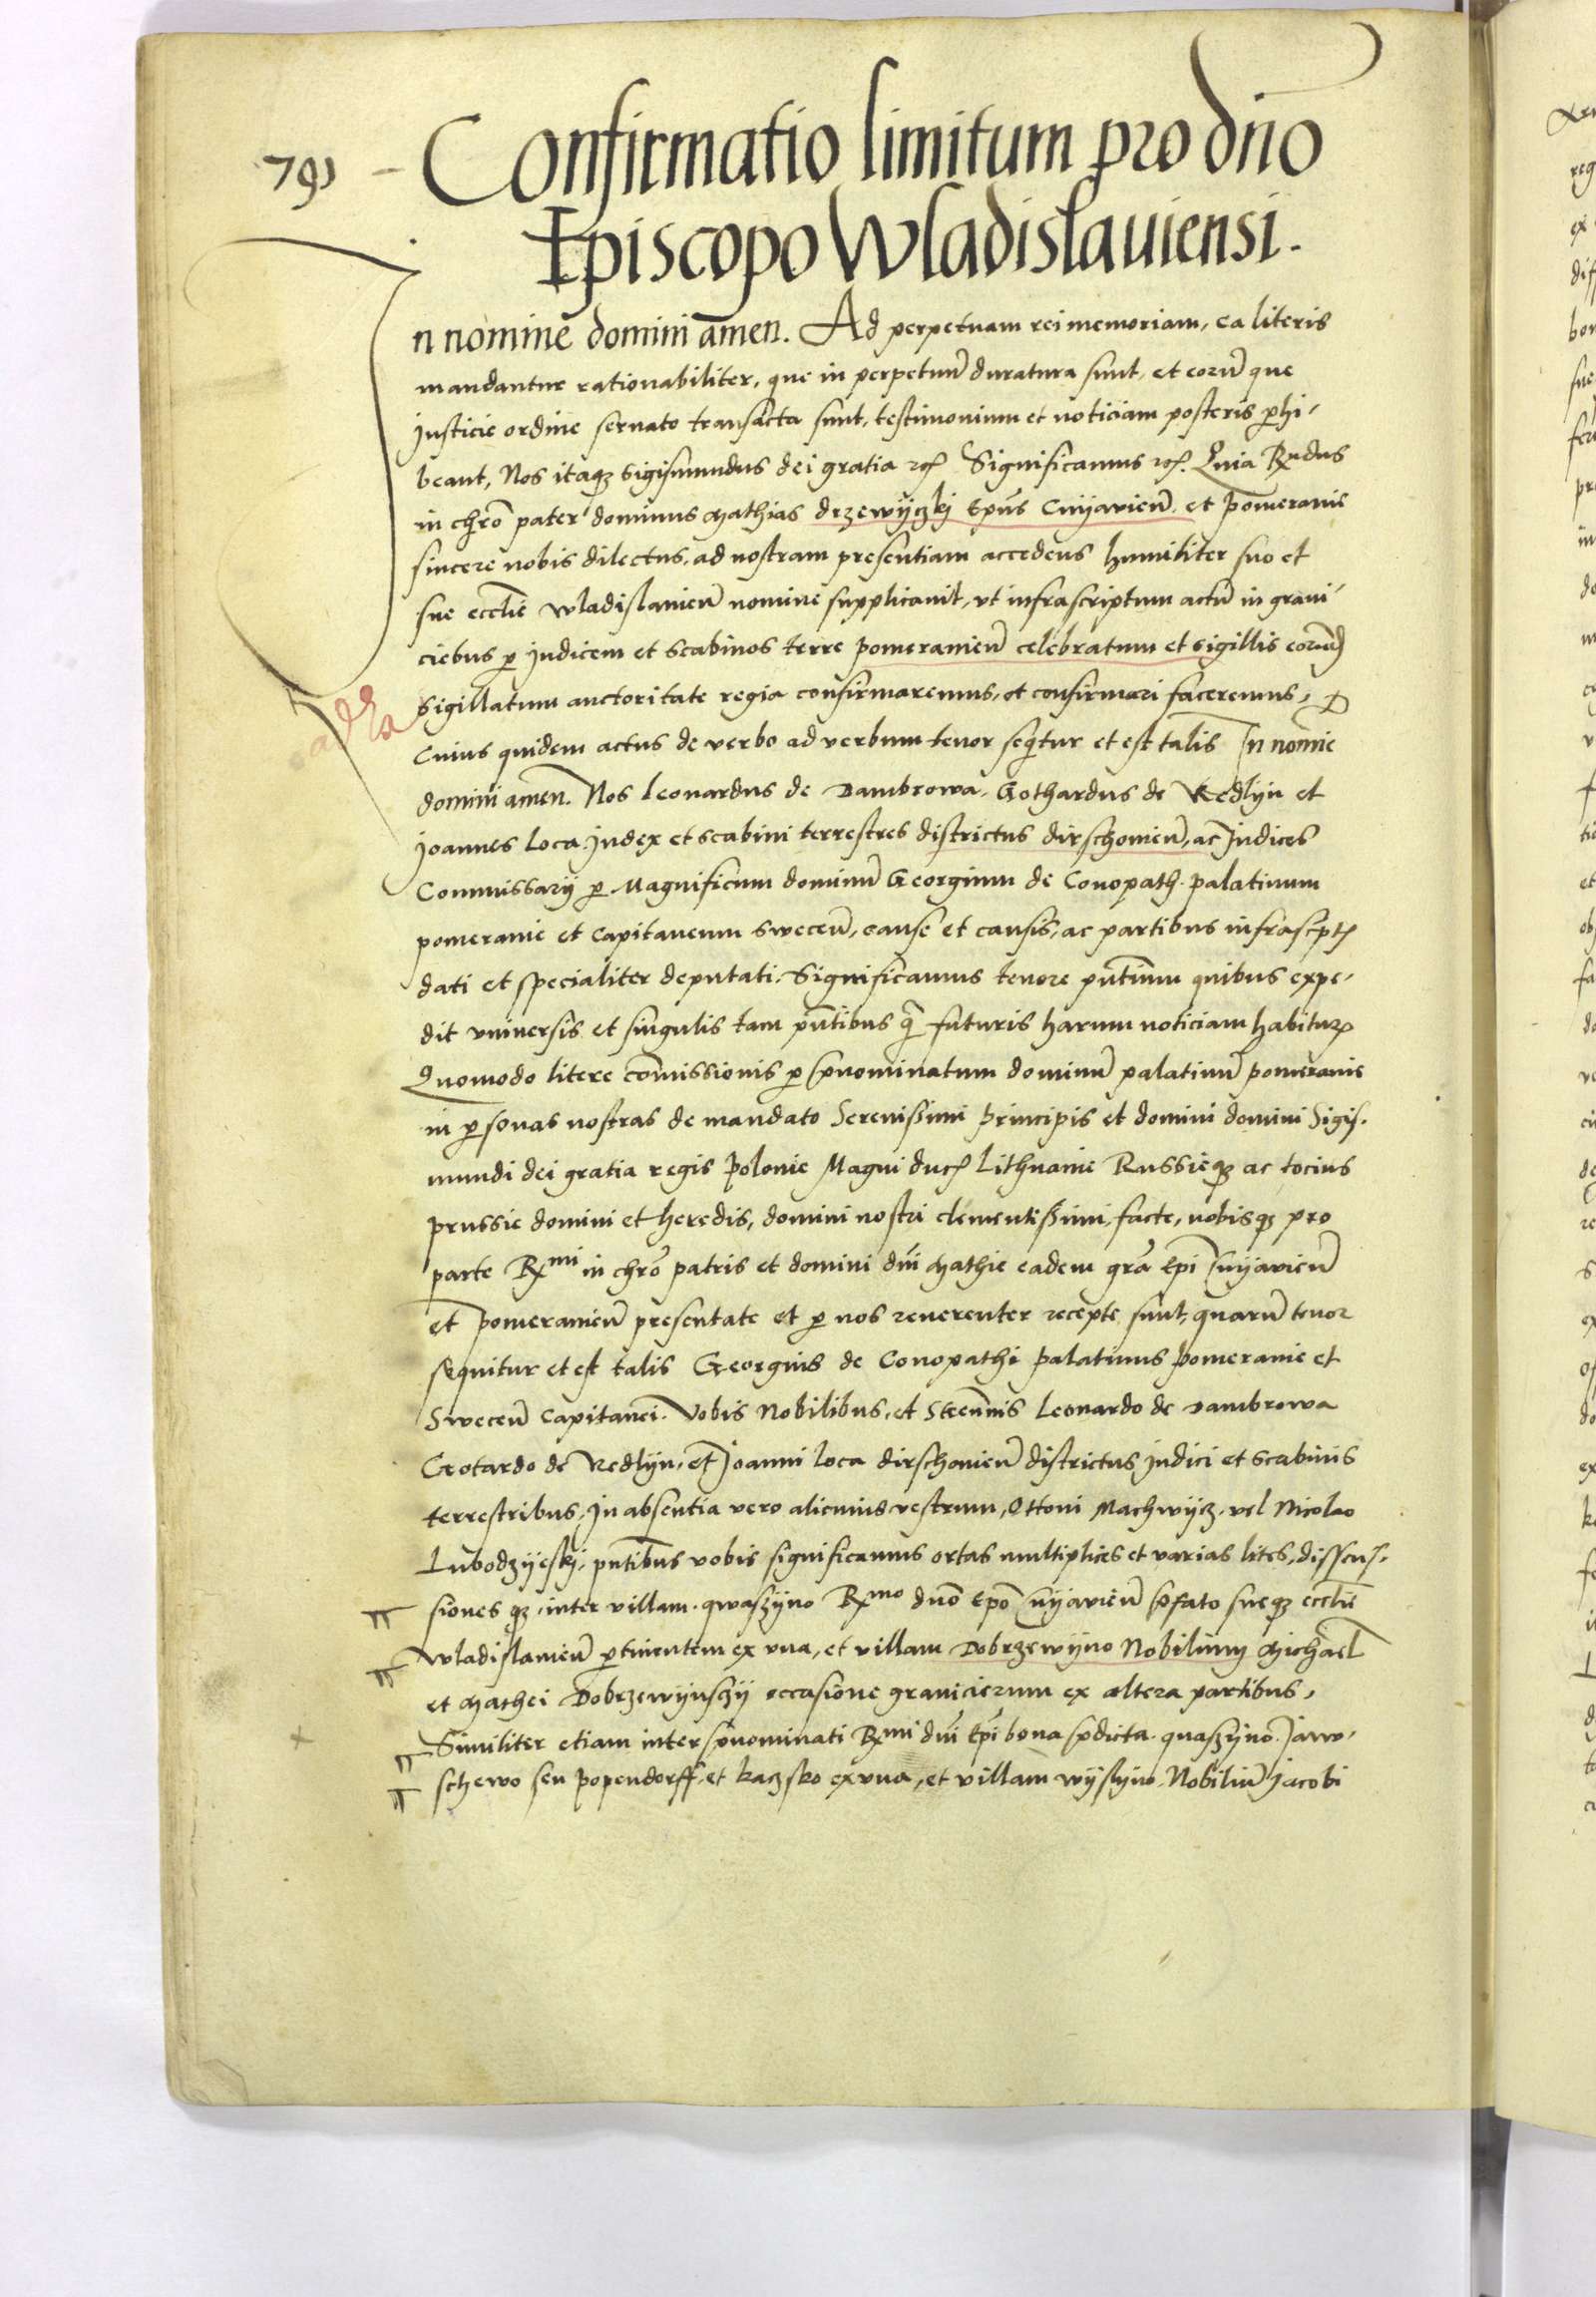 791 - Confirmatio limitum pro dño
Episcopo Wladislauiensi.
In nomine domini amen. Ad perpetuam rei memoriam, ea literis
mandantur rationabiliter, que in perpetuũ duratura sunt, et eorũ que
Justicie ordine seruato transacta sunt, testimonium et noticiam posteris ꝑhi-
beant, Nos itaqꝫ Sigismundus dei gratia ꝛc̃ Significamus ꝛc̃. Quia R̃ndus
in chrõ pater dominus Mathias drzewyczkj Ep̃us Cuyauień. et pomeranie
sincere nobis dilectus, ad nostram presentiam accedens humiliter suo et
sue ecclẽie wladislauień nomine supplicauit, vt infrascriptum actũ in grani-
ciebus ꝑ Judicem et scabinos terre pomeranień celebratum et sigillis eorũd
Sigillatum auctoritate regia confirmaremus, et confirmari faceremus,
Cuius quidem actus de verbo ad verbum tenor seq̃tur et est talis In nomĩe
domini amen. Nos Leonardus de Dambrowa, Gothardus de Redlyn et
Joannes Loca Judex et scabini terrestres districtus dirschouień, ac Judices
Commissarij ꝑ Magnificum dominũ Georgium de Conopath palatinum
pomeranie et Capitaneum Sweceñ, cause et causis, ac partibus infrascpt̃
dati et specialiter deputati. Significamus tenore pñtium quibus expe-
dit vniuersis et singulis tam pñtibus q̃ futuris harum noticiam habituꝝ
Quomodo litere com̃issionis ꝑ p̃nominatum dominũ palatinũ pomeranie
in ꝑsonas nostras de mandato Serenissimi principis et domini domini Sigis-
mundi dei gratia regis polonie Magni duc̃ Lithuanie Russieqꝫ ac tocius
prussie domini et heredis, domini nostri clementissimi, facte, nobisqꝫ pro
parte R̃mi in chrõ patris et domini dñi Mathie eadem grã Ep̃i Cuyauień
et pomeranień presentate et ꝑ nos reuerenter recepte sunt, quarũ tenor
sequitur et est talis Georgius de Conopathi palatinus pomeranie et
Sweceñ Capitanei. Vobis Nobilibus, et Streñuis Leonardo de Dambrowa
Gotardo de Redlyn, et Joanni Loca dirschouień districtus Judici et scabinis
terrestribus, in absentia vero alicuius vestrum, Ottoni Machwycz. vel Nicolao
Lubodzyeskj. pñtibus vobis significamus ortas multiplices et varias lites, dissen-
siones qꝫ, inter villam. qwaszyno R̃mo dño Epõ Cuyauień p̃fato sueqꝫ ecclẽie
wladislauień ꝑtinentem ex vna, et villam Dobrzewyno Nobilium Michael
et Mathei Dobrzewynsczij occasione granicierum ex altera partibus,
Similiter etiam inter p̃nominati R̃mi dñi Ep̃i bona p̃dicta. quaszyno. Jaw-
schewo seu popendorff. et kaczsko ex vna, et villam wysszyno. Nobiliũ Jacobi